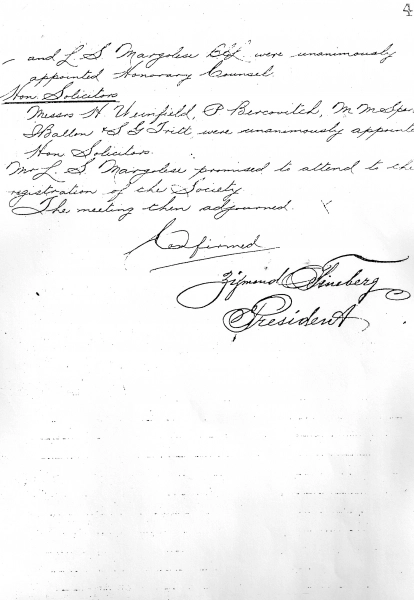 4
- and L S Margolese Esq were unanimously
appointed Honorary Counsel.
Hon Solicitors
Messrs H Weinfield, P Bercovitch, M M Spe
I Ballon & S G Tritt were unanimously appointe
Hon Solicitors.
Mr L. S Margolese promised to attend to the
registration of the Society
The meeting then adjourned.
Confirmed
Zigmond Fineberg
President